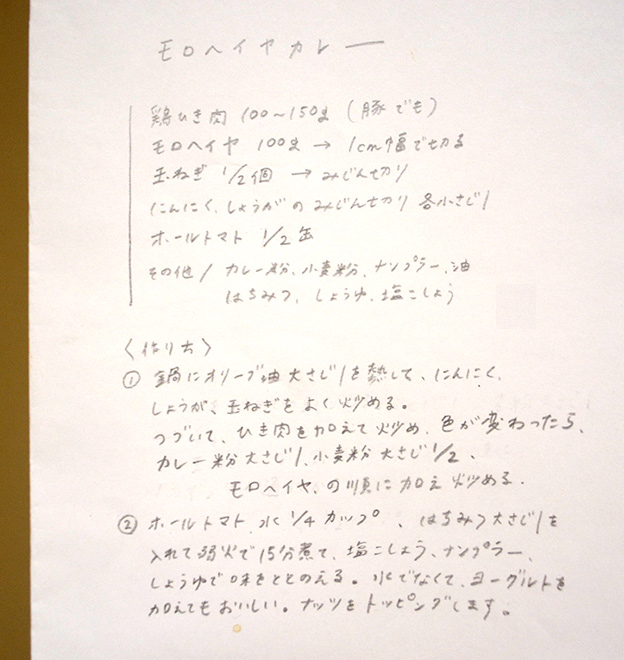 モロヘイヤカレー
鶏ひき肉 100〜150g (豚でも)
モロヘイヤ 100g → 1cm幅で切る
玉ねぎ 1/2個 → みじん切り
にんにく、しょうがのみじん切り 各小さじ1
ホールトマト 1/2缶
その他/ カレー粉、小麦粉、ナンプラー、油
はちみつ、しょうゆ、塩こしょう
〈作り方〉
① 鍋にオリーブ油大さじ1を熱して、にんにく、
しょうが、玉ねぎをよく炒める。
つづいて、ひき肉を加えて炒め、色が変わったら、
カレー粉大さじ1、小麦粉大さじ1/2、
モロヘイヤ、の順に加え炒める。
② ホールトマト、水1/4カップ、はちみつ大さじ1を
入れて弱火で15分煮て、塩こしょう、ナンプラー、
しょうゆで味をととのえる。水でなくて、ヨーグルトを
加えてもおいしい。ナッツをトッピングします。